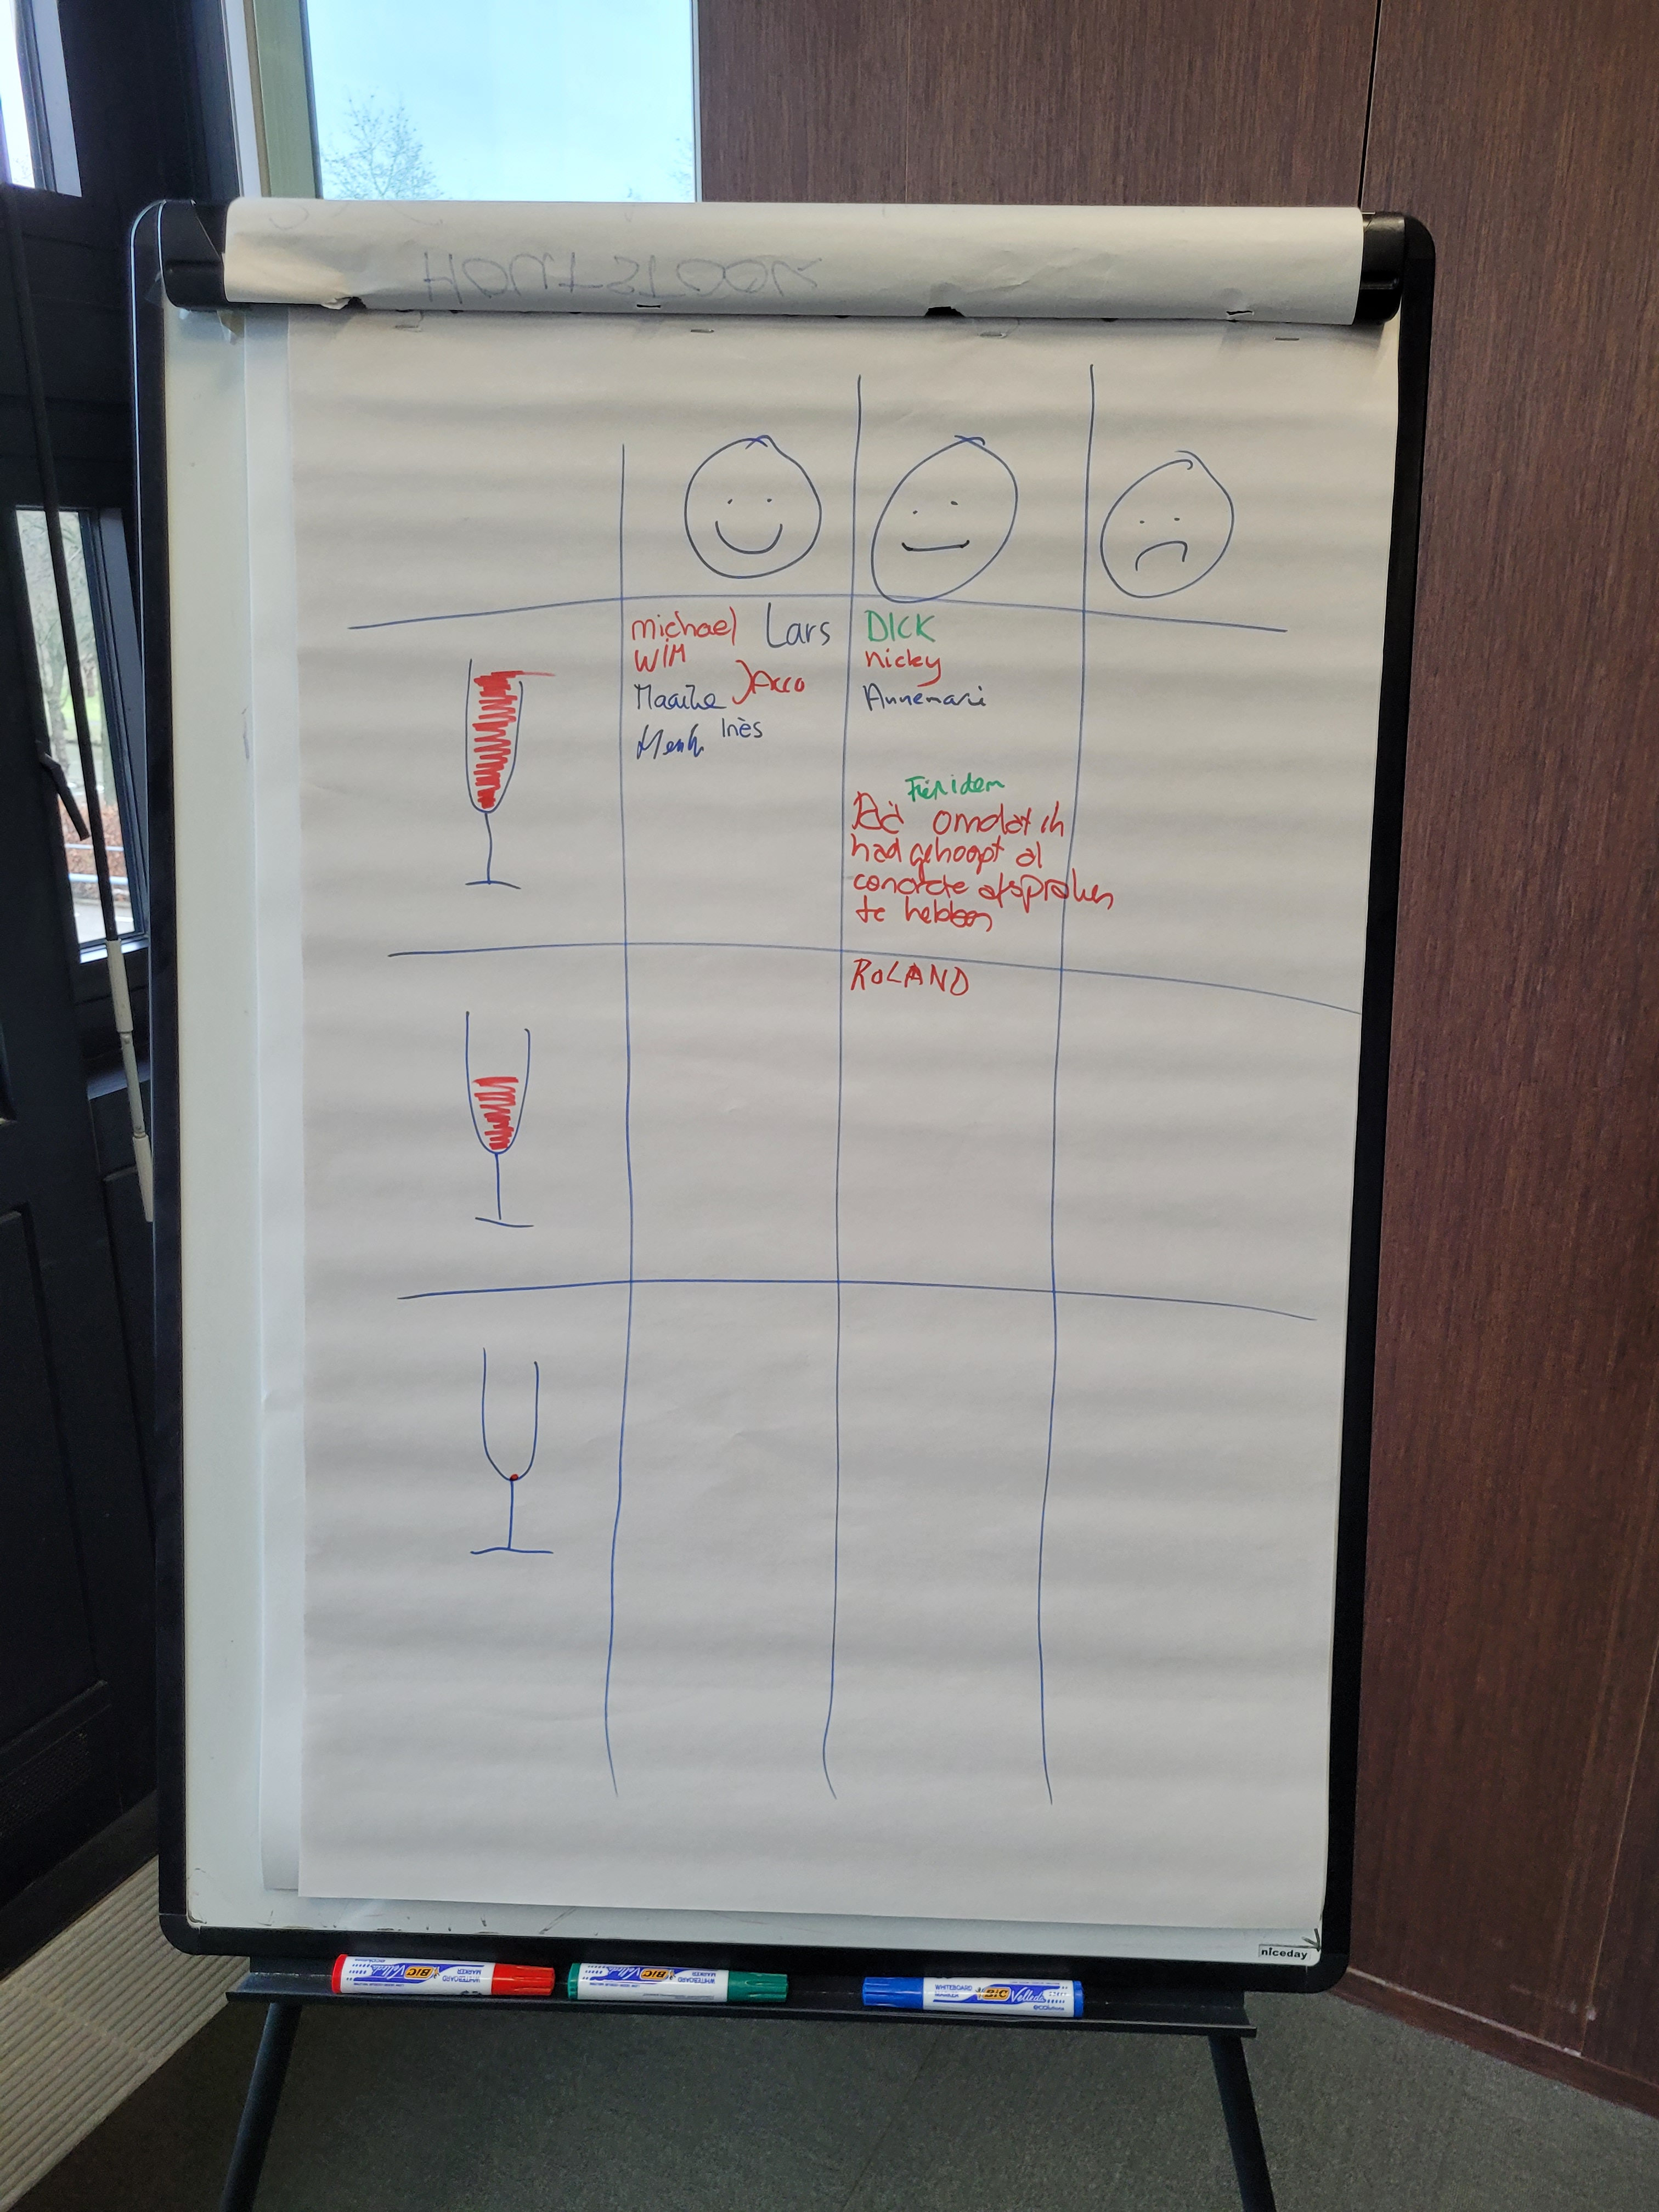 HOUTSTOOK
michael Lars
WIM
Jacco
Maaike
Henk Inès
DICK
nicky
Annemarie
omdat ik
had gehoopt al
concrete afspraken
te hebben
ROLAND
niceday
WHITEBOARD
MARKER
BIC Velleda
WHITEBOARD
MARKER
BIC Velleda
WHITEBOARD
MARKER
BIC Velleda